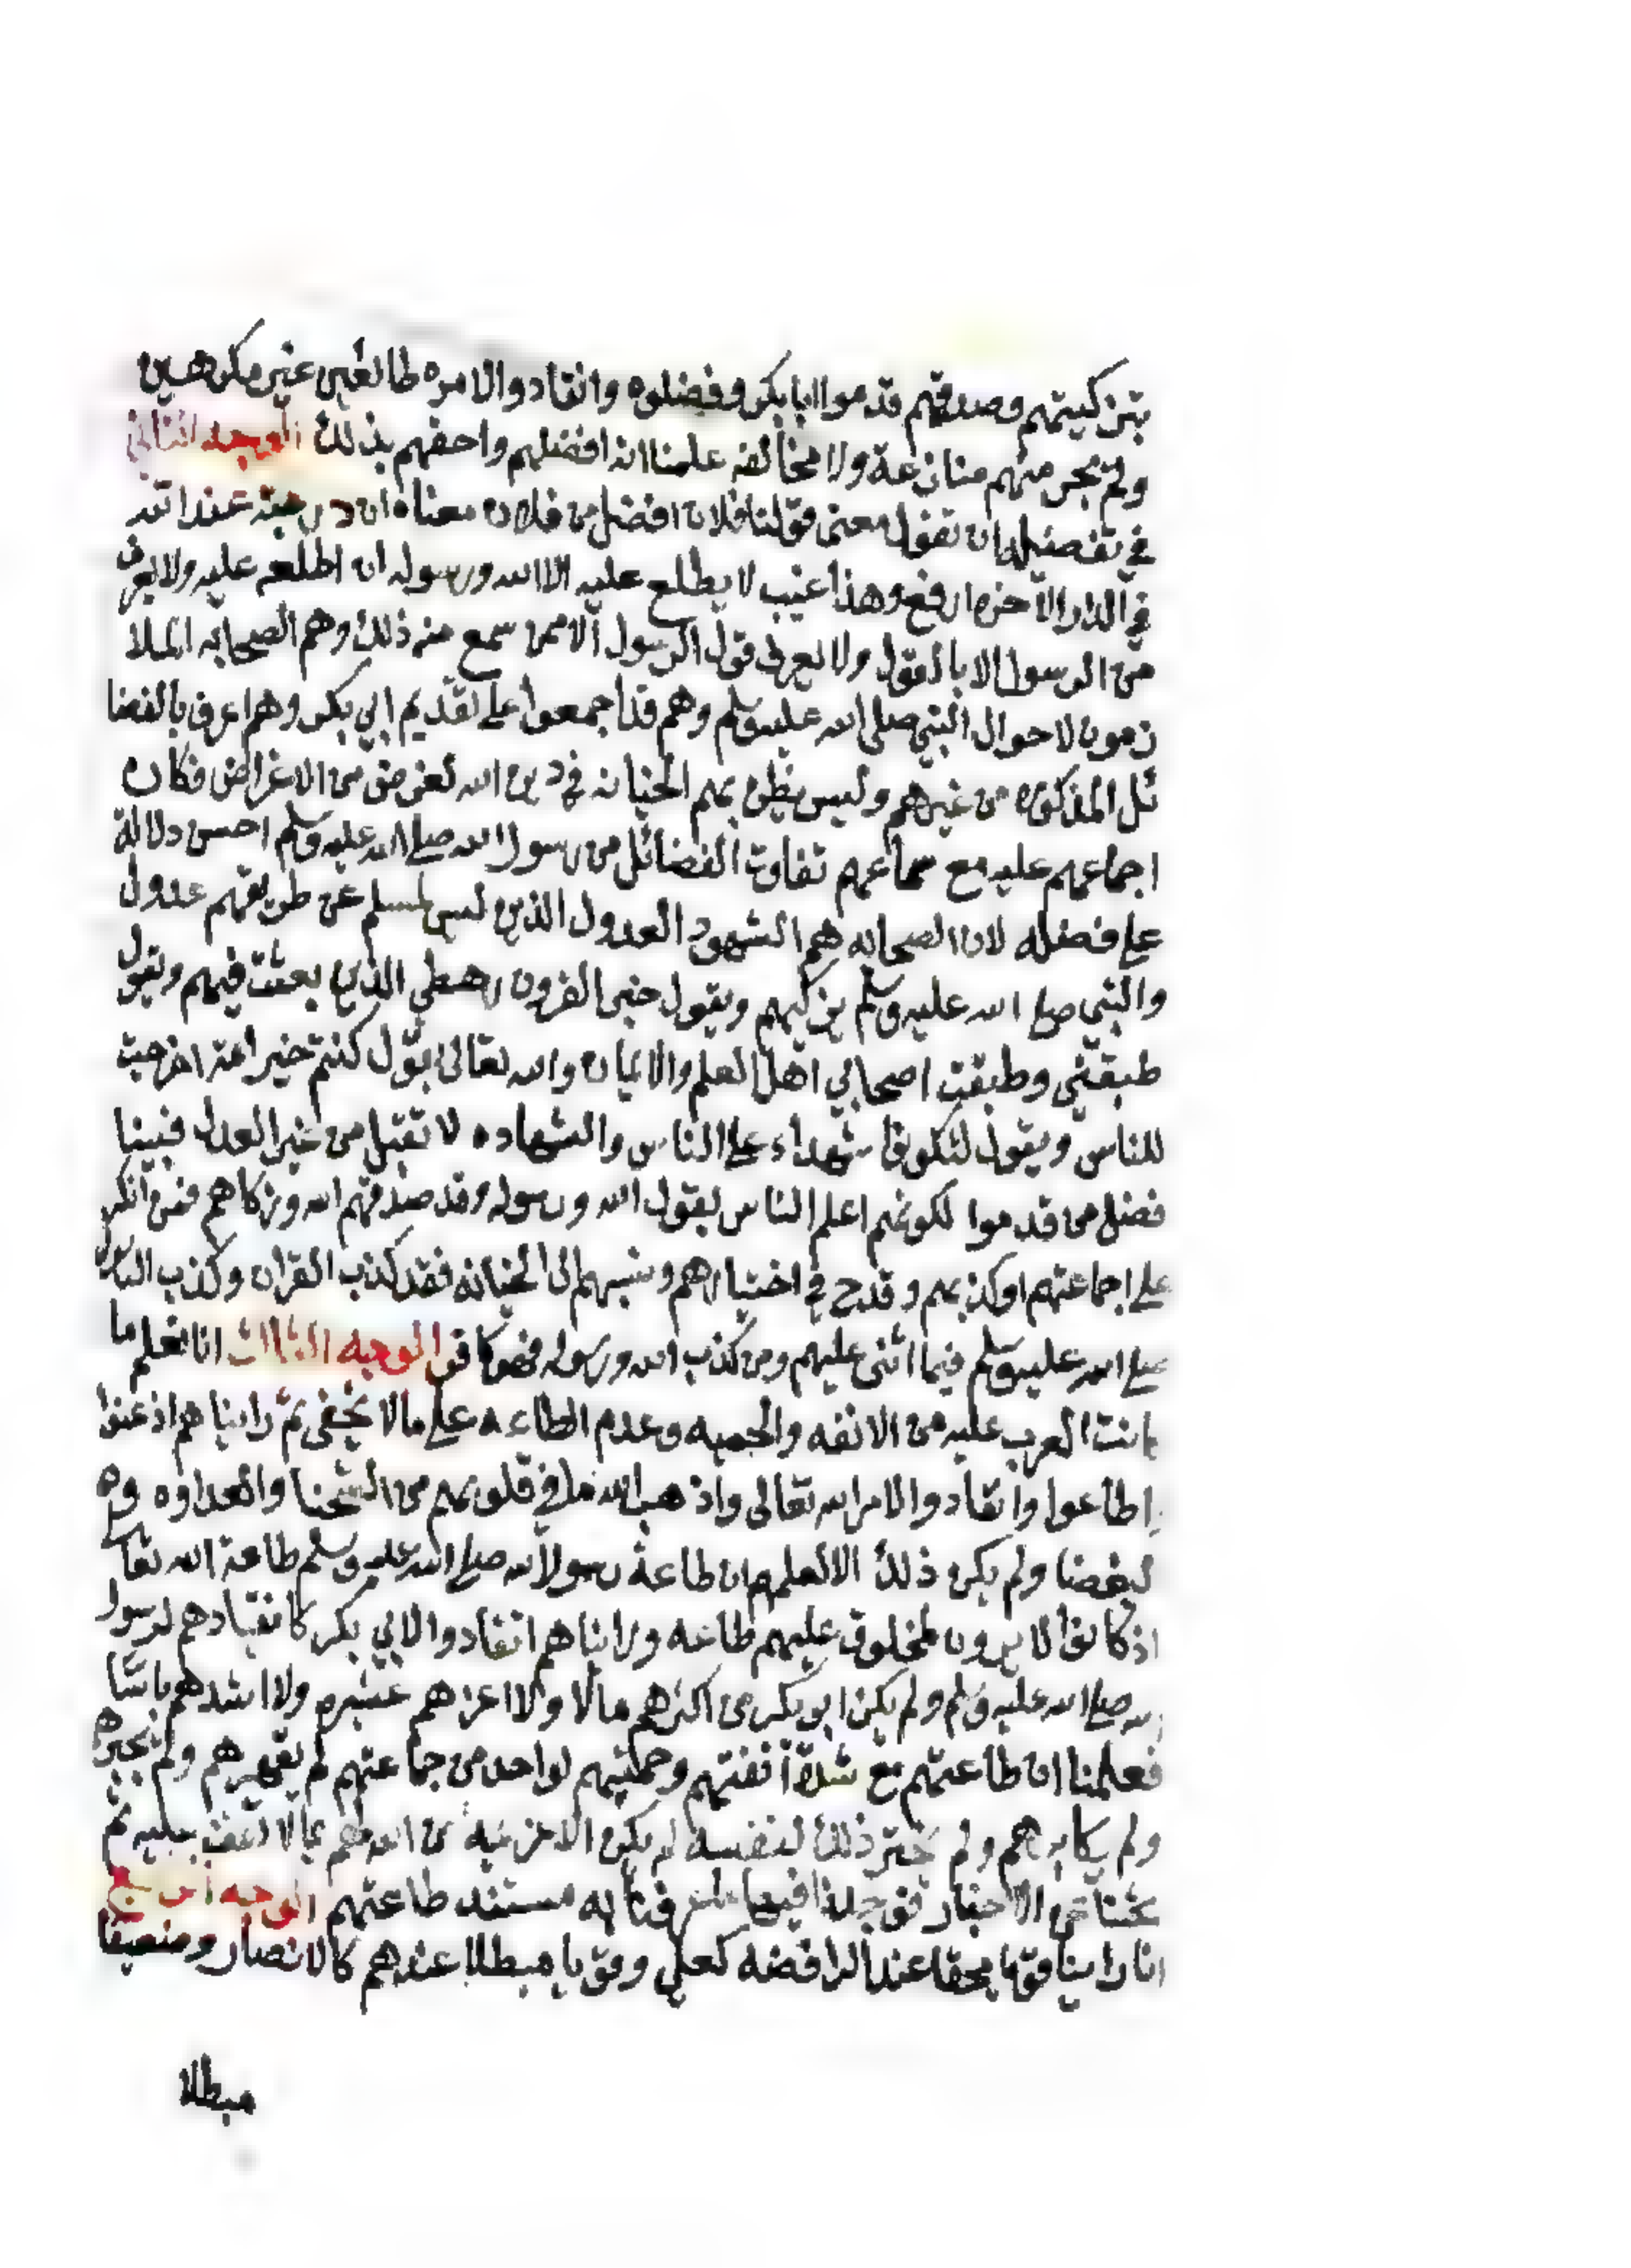 بتزكيتهم وصدقهم قدموا ابا بكر وفضلوه وانقادوا لامره طائعين غير مكرهين
ولم يجر منهم منازعة ولا مخالفه علمنا انه افضلهم واحقهم بذلك الوجه الثاني
في تفضيله ان تقول معنى قولنا فلان افضل من فلان معناه ان درجته عند الله
في الدار الآخره ارفع وهذا غيب لا يطلع عليه الا الله ورسوله ان اطلعه عليه ولا يعرف
من الرسول الا بالقول ولا يعرف قول الرسول الا ممن سمع منه ذلك وهم الصحابه الملا
زمون لاحوال النبي صلى الله عليه وسلم وهم قد اجمعوا على تقديم ابي بكر وهم اعرف بالفضا
ئل المذكوره من غيرهم وليس يظن بهم الخيانه في دين الله لغرض من الاغراض فكان
اجماعهم عليه مع سماعهم تفاوت الفضائل من رسول الله صلى الله عليه وسلم احسن دلالة
على فضله لان الصحابه هم الشهود العدول الذين ليس لمسلم عن طريقهم عدول
والنبي صلى الله عليه وسلم يزكيهم ويقول خير القرون رهطي الذين بعثت فيهم ويقول
طبقتي وطبقت اصحابي اهل العلم والايمان والله تعالى يقول كنتم خير امة اخرجت
للناس ويقول لتكونوا شهداء على الناس والشهاده لا تقبل من غير العدل فبينا
فضل من قدموا لكونهم اعلم الناس بقول الله ورسوله وقد صدقهم الله وزكاهم فمن انكر
على اجماعهم او كذبهم وقدح في اختيارهم ونسبهم الى الخيانه فقد كذب القران وكذب الرسول
صلى الله عليه وسلم فيما اثنى عليهم ومن كذب الله ورسوله فهو كافر الوجه الثالث انا نعلم ما
كانت العرب عليه من الانفه والحميه وعدم الطاعه على ما لا يخفى ثم راينا هم اذعنوا
واطاعوا وانقادوا لامر الله تعالى واذهب الله ما في قلوبهم من الشحنا والعداوه
لبعضنا ولم يكن ذلك الا لعلمهم ان طاعة رسول الله صلى الله عليه وسلم طاعة الله تعا
اذ كانوا لا يرون لمخلوق عليهم طاعه وراينا هم انقادوا لابي بكر كانقيادهم لرسول
الله صلى الله عليه وسلم ولم يكن ابو بكر من اكثرهم مالا ولا اعزهم عشيره ولا اشدهم باسا
فعلمنا ان طاعتهم مع شدة انفتهم وحميتهم لواحد من جماعتهم لم يقهرهم ولم يجبرهم
ولم يكابرهم ولم يختر ذلك لنفسه لم يكن الا من الله لهم ثم
بحثنا عن الاخبار فوجدنا فيها ما عرفنا به مستند طاعتهم الوجه الرابع
انا راينا قوما محقا عند الرافضه كعلي وقوما مبطلا عندهم كالانصار ومنصبا
مبطلا